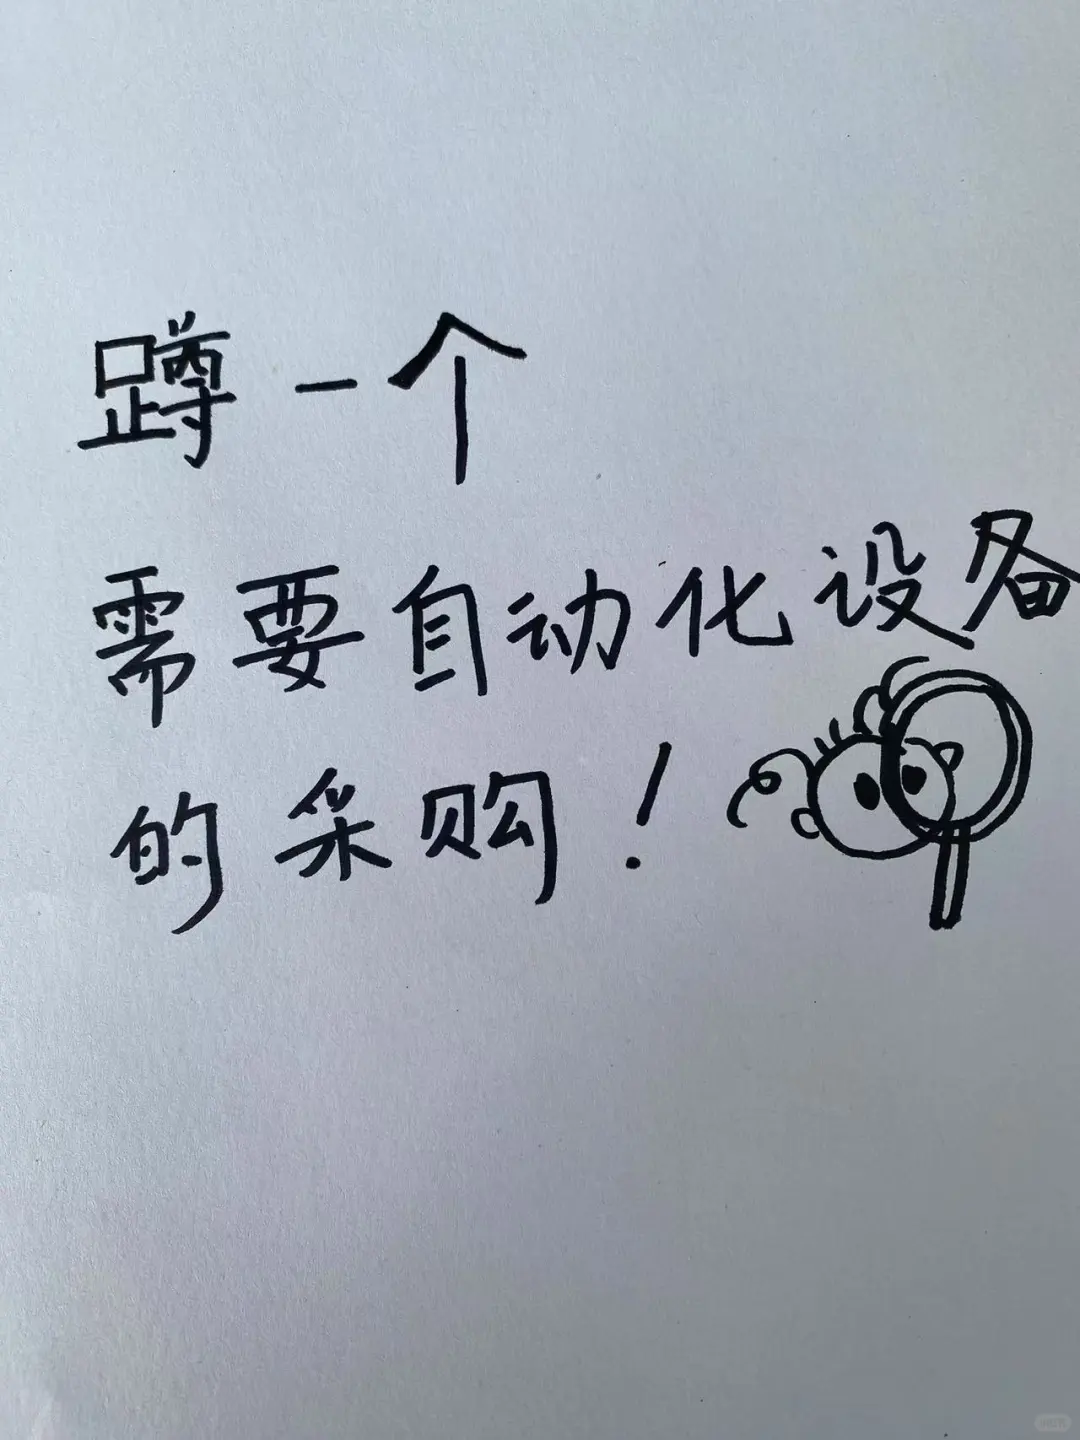 蹲一个
需要自动化设备
的采购！